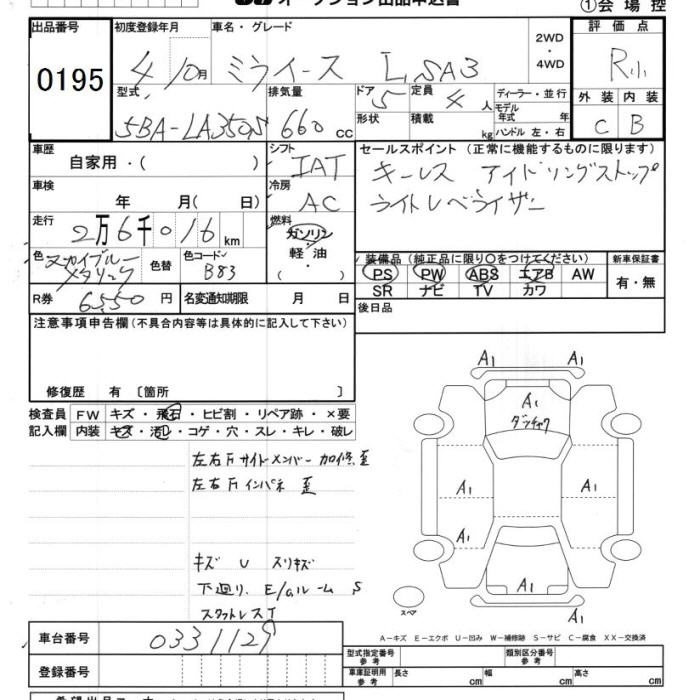 オークション出品申込書
①会場控
出品番号
0195
初度登録年月
4 10月
車名・グレード
ミライース L,SA3
2WD
・
4WD
評価点
R小
外装 内装
C B
型式
5BA-LA350S
排気量
660 cc
ドア
5
形状
定員
4 人
積載
kg
ディーラー・並行
モデル年式 年
ハンドル 左・右
車歴
自家用・( )
シフト
IAT
車検
年 月( 日)
冷房
AC
走行
2万6千016km
燃料
ガソリン
軽・油
( ・ )
色
スカイブルーメタリック
色替
色コード
B83
R券
6550 円
名変通知期限 月 日
セールスポイント (正常に機能するものに限ります)
キーレス アイドリングストップ
ライトレベライザー
装備品 (純正品に限り○をつけてください)
PS PW ABS エアB AW
SR ナビ TV カワ
新車保証書
有・無
後日品
注意事項申告欄(不具合内容等は具体的に記入して下さい)
修復歴 有 〔箇所 〕
検査員記入欄
FW キズ・飛石・ヒビ割・リペア跡・×要
内装 キズ・汚レ・コゲ・穴・スレ・キレ・破レ
左右Fサイドメンバー 加修、歪
左右Fインパネ 歪
キズ U スリキズ
下廻り、E/gルーム S
スタットレスT
A1 A1
A1
ダッチャク
A1 A1
A1
A1
A1
スペア
A-キズ E-エクボ U-凹み W-補修跡 S-サビ C-腐食 XX-交換済
車台番号
0331129
登録番号
型式指定番号
参考
類別区分番号
参考
車庫証明用
参考
長さ cm 幅 cm 高さ cm